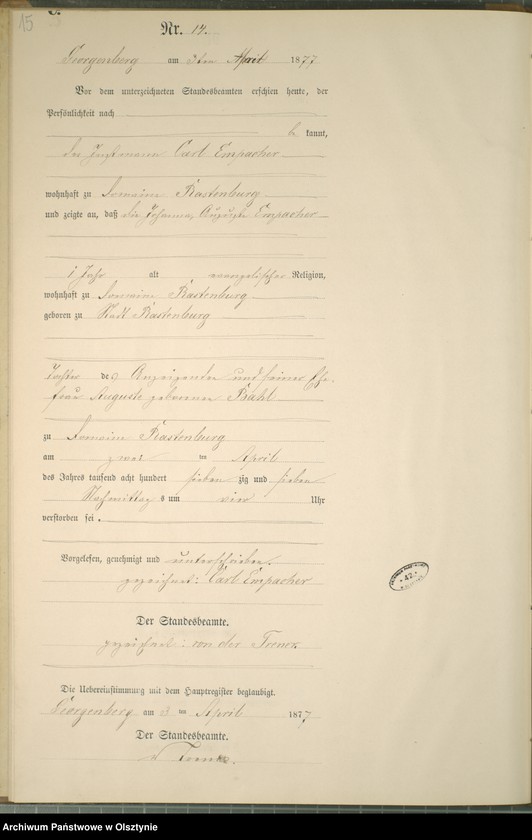 15
Nr. 14.
Georgenberg am 3ten April 1877
Vor dem unterzeichneten Standesbeamten erschien heute, der
Persönlichkeit nach
be kannt,
der Instmann Carl Empacher
wohnhaft zu Domaine Rastenburg
und zeigte an, daß die Johanna, Auguste Empacher
1 Jahr alt evangelischer Religion,
wohnhaft zu Domaine Rastenburg
geboren zu Stadt Rastenburg
Tochter des Anzeigenden und seiner Ehe-
frau Auguste geborenen Bahl
zu Domaine Rastenburg
am zwei ten April
des Jahres tausend acht hundert sieben zig und sieben
Nachmittag s um vier Uhr
verstorben sei.
Vorgelesen, genehmigt und unterschrieben.
gezeichnet: Carl Empacher
Der Standesbeamte.
gezeichnet: von der Trenck
Die Uebereinstimmung mit dem Hauptregister beglaubigt.
Georgenberg am 3 ten April 1877
Der Standesbeamte.
v Trenck.
42
Archiwum Państwowe w Olsztynie